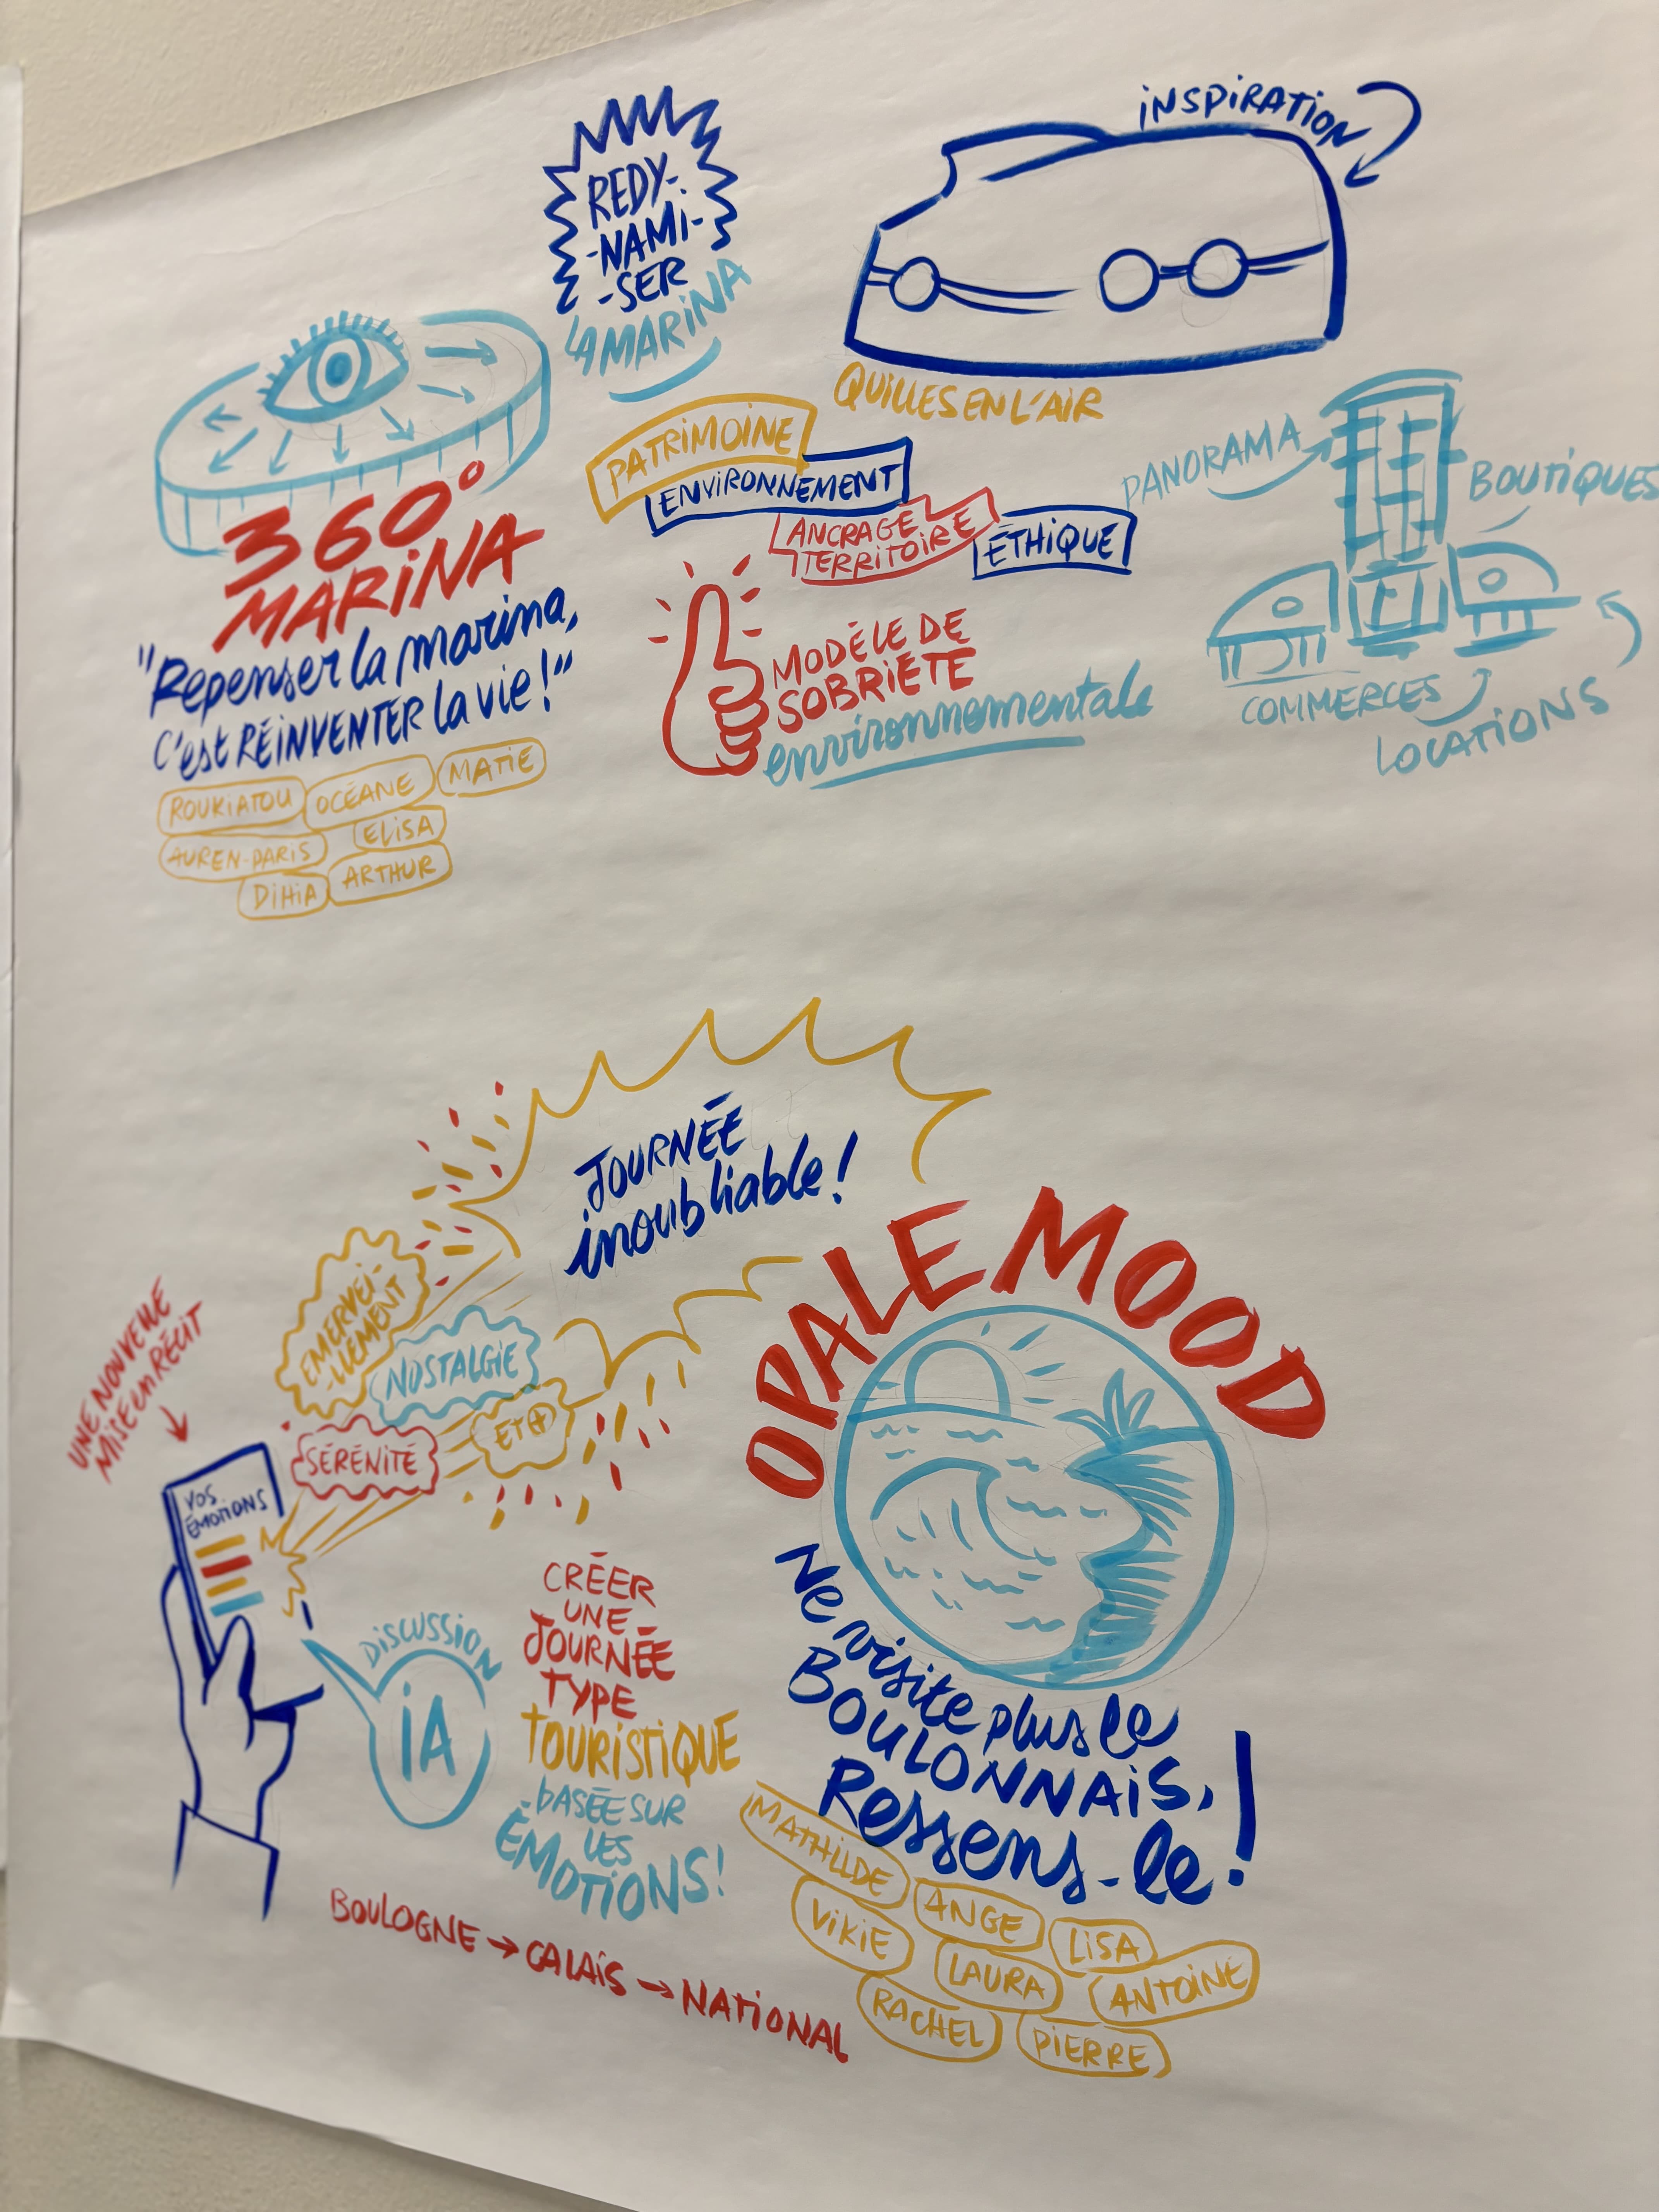 REDY-
-NAMI-
-SER
LA MARINA
INSPIRATION
QUILLES EN L'AIR
360°
MARINA
"Repenser la marina,
C'est RÉINVENTER la vie!"
ROUKIATOU
OCÉANE
MATIE
AUREN-PARIS
ELISA
DIHIA
ARTHUR
PATRIMOINE
ENVIRONNEMENT
ANCRAGE
TERRITOIRE
ÉTHIQUE
MODÈLE DE
SOBRIÉTÉ
environnementale
PANORAMA
BOUTIQUES
COMMERCES
LOCATIONS
JOURNÉE
inoubliable!
UNE NOUVELLE
MISE en RÉCIT
EMERVEI-
-LLEMENT
NOSTALGIE
SÉRÉNITÉ
ET +
VOS
ÉMOTIONS
DISCUSSION
IA
CRÉER
UNE
JOURNÉE
TYPE
TOURISTIQUE
BASÉE SUR
LES
ÉMOTIONS!
BOULOGNE → CALAIS → NATIONAL
OPALE MOOD
Ne visite plus le
BOULONNAIS,
Ressens-le!
MATHILDE
ANGE
LISA
VIKIE
LAURA
ANTOINE
RACHEL
PIERRE